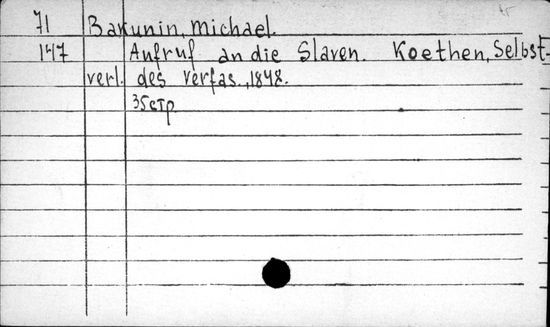 71 Bakunin, Michael.
147 Aufruf an die Slaven. Koethen, Selbst-
verl. des Verfas., 1848.
35стр